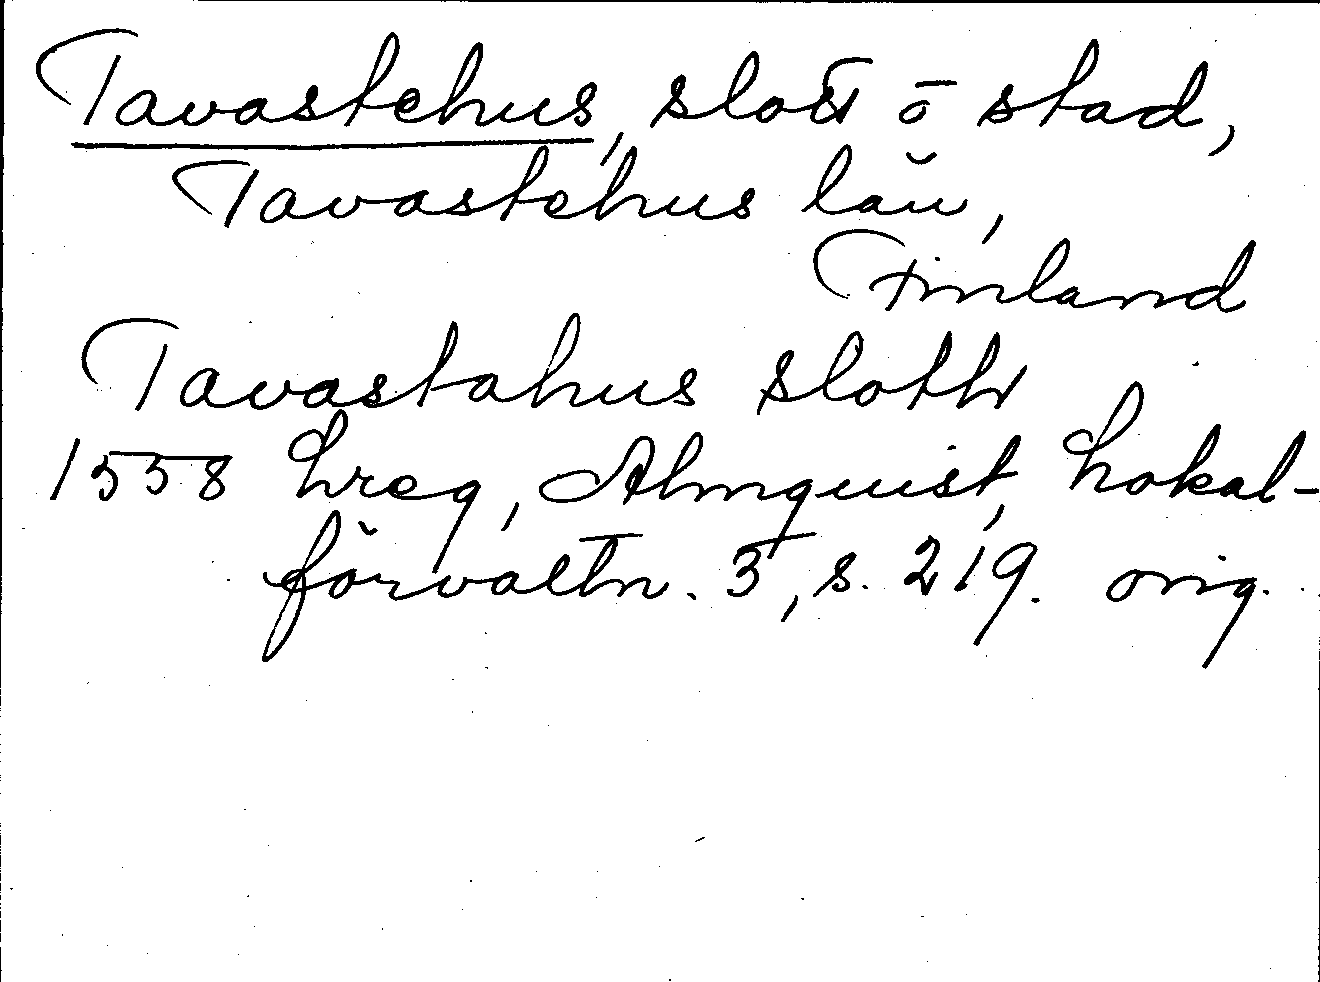 Tavastehus, slott o stad,
Tavastehus län,
Finland
Tavastahus sloth
1558 Lreg, Almquist, Lokal-
förvaltn. 3, s. 219. orig.